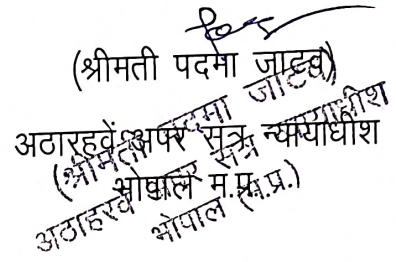 (श्रीमती पदमा जाटव)
अठारहवें अपर सत्र न्यायाधीश
भोपाल म.प्र.
(श्रीमती पदमा जाटव)
अठाहरवें अपर सत्र न्यायाधीश
भोपाल (म.प्र.)